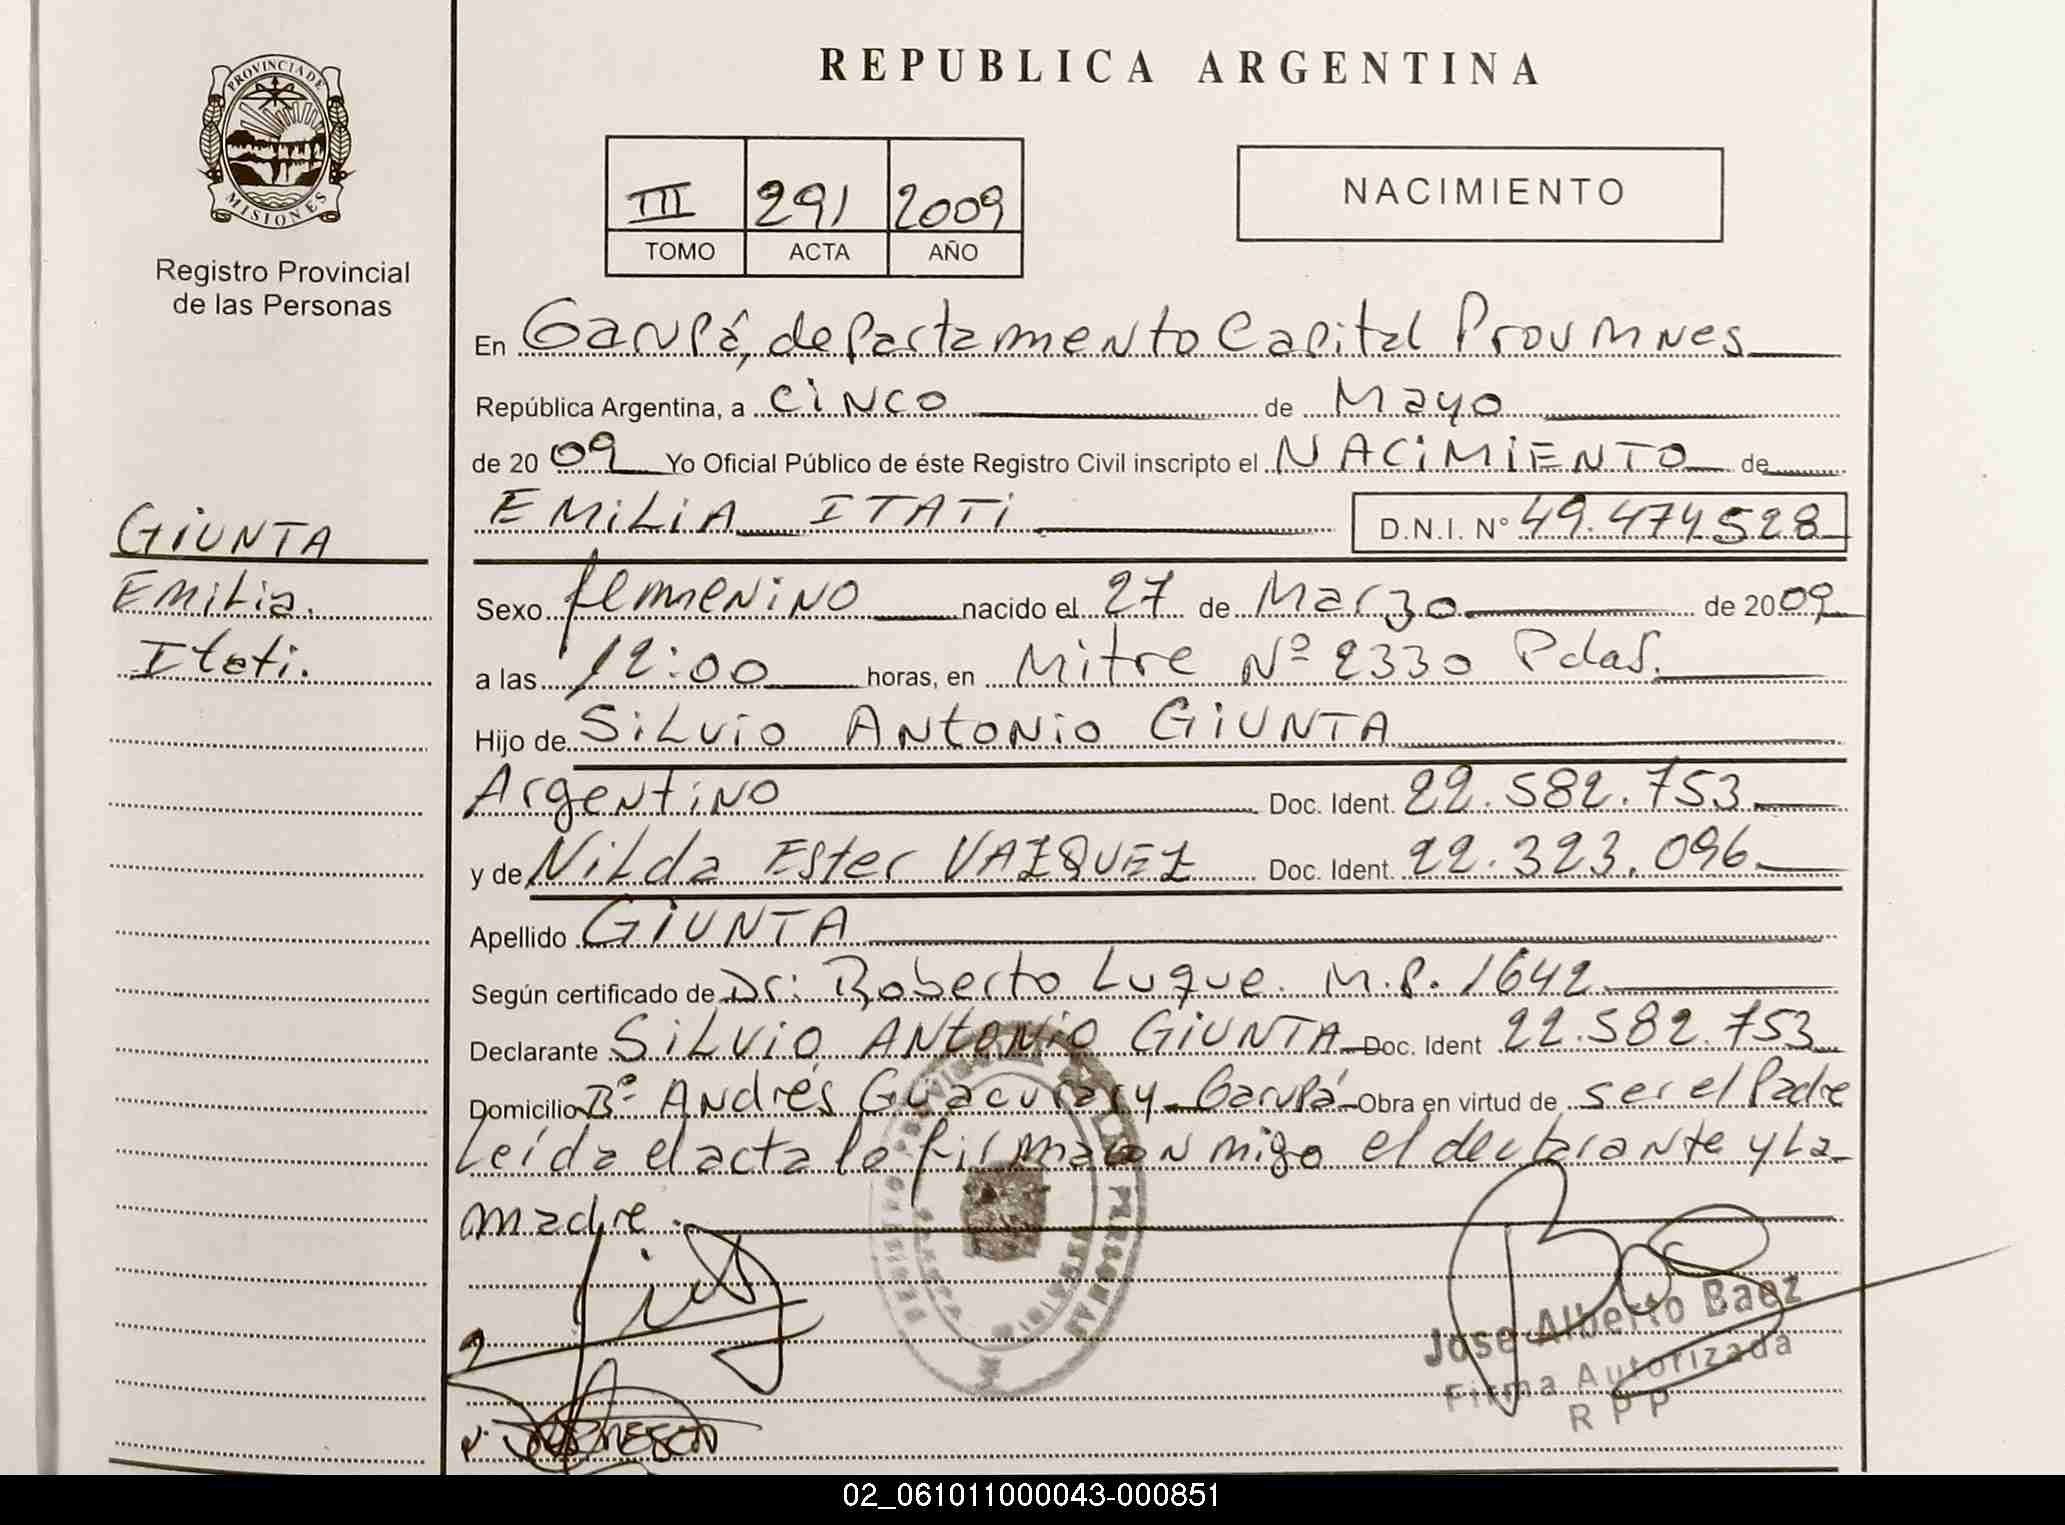 REPUBLICA ARGENTINA
PROVINCIA DE
MISIONES
Registro Provincial
de las Personas
III 291 2009
TOMO ACTA AÑO
NACIMIENTO
En Garupá, departamento Capital Prov Mnes
República Argentina, a cinco de Mayo
de 2009 Yo Oficial Público de éste Registro Civil inscripto el NACIMIENTO de
EMILIA ITATI D.N.I. N° 49.474.528
GIUNTA
Emilia.
Itati.
Sexo femenino nacido el 27 de Marzo de 2009
a las 12:00 horas, en Mitre Nº 2330 Pdas.
Hijo de Silvio Antonio GIUNTA
Argentino Doc. Ident. 22.582.753
y de Nilda Ester VAZQUEZ Doc. Ident. 22.323.096
Apellido GIUNTA
Según certificado de Dr: Roberto Luque. M.P. 1642
Declarante Silvio Antonio GIUNTA Doc. Ident 22.582.753
Domicilio Bº Andrés Guacurary - Garupá - Obra en virtud de ser el Padre
Leída el acta la firma con migo el declarante y la
madre.
Jose Alberto Baez
Firma Autorizada
R P P
02_061011000043-000851